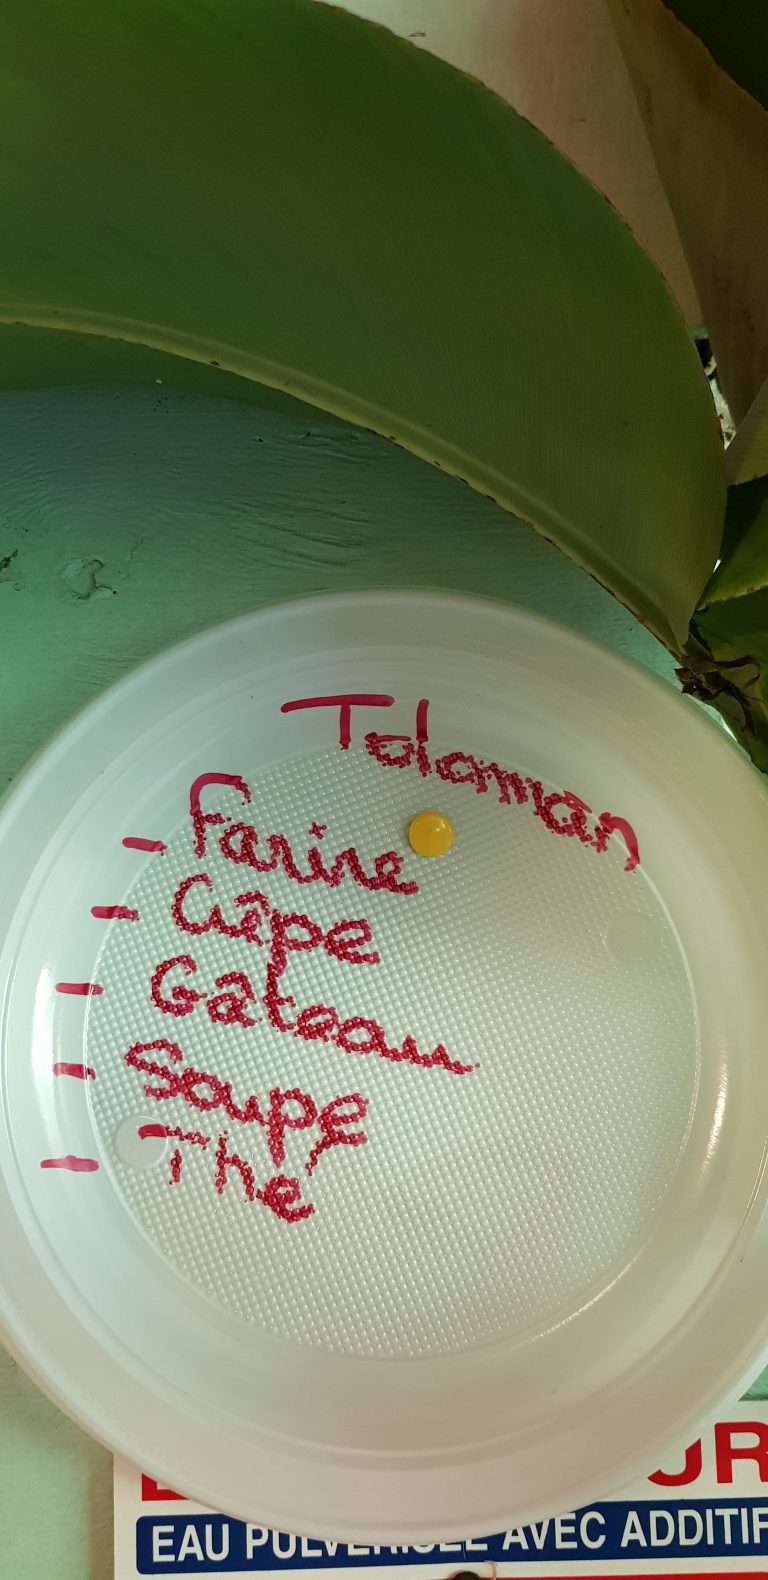 Toloman
- Farine
- Crêpe
- Gâteau
- Soupe
- Thé
EAU PULVERISEE AVEC ADDITIF